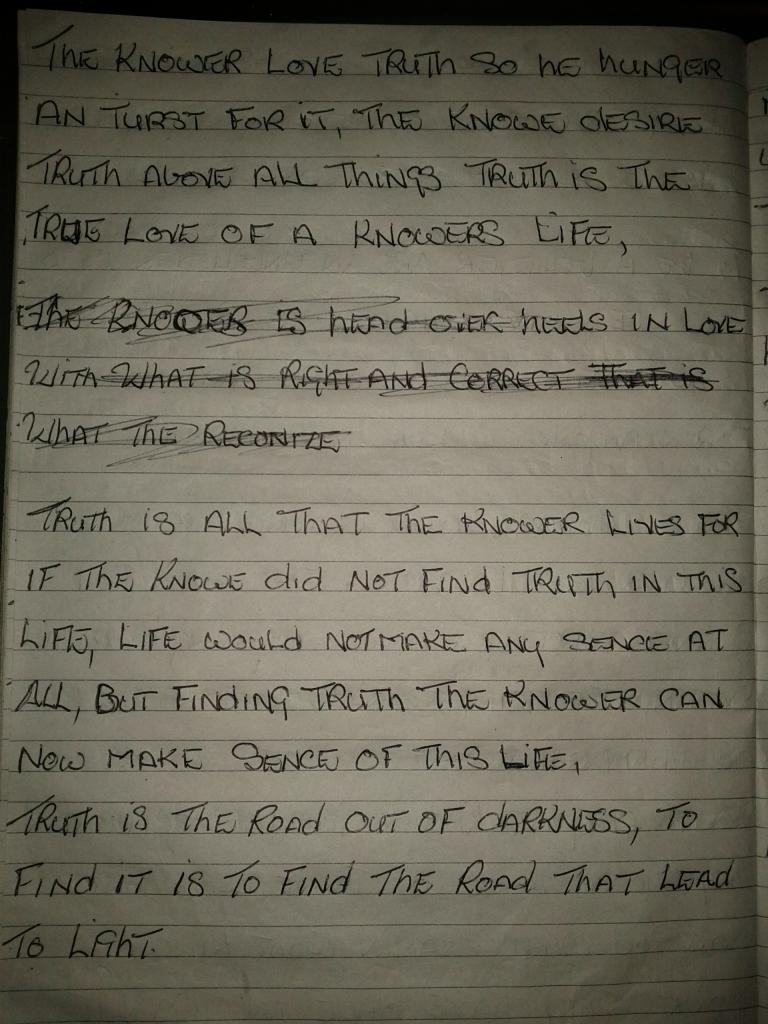 THE KNOWER LOVE TRUTH SO HE HUNGER
AN TURST FOR IT, THE KNOWE DESIRE
TRUTH ABOVE ALL THINGS TRUTH IS THE
TRUE LOVE OF A KNOWERS LIFE,
THE KNOWER IS HEAD OVER HEELS IN LOVE
WITH WHAT IS RIGHT AND CORRECT THAT IS
WHAT THE RECONIZE
TRUTH IS ALL THAT THE KNOWER LIVES FOR
IF THE KNOWE did NOT FIND TRUTH IN THIS
LIFE, LIFE WOULD NOT MAKE ANY SENCE AT
ALL, BUT FINDING TRUTH THE KNOWER CAN
NOW MAKE SENCE OF THIS LIFE,
TRUTH IS THE ROAD OUT OF DARKNESS, TO
FIND IT IS TO FIND THE ROAD THAT LEAD
TO LIGHT.